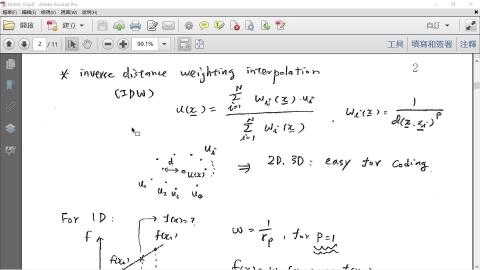 Notes_10.pdf - Adobe Acrobat Pro
檔案(F) 編輯(E) 檢視(V) 視窗(W) 說明(H)
開啟 建立 自訂
2 / 11 99.1% 工具 填寫和簽署 注釋
2
* inverse distance weighting interpolation
(IDW)
u(x) = \frac{\sum_{i=1}^{N} W_i(x) \cdot u_i}{\sum_{i=1}^{N} W_i(x)} , W_i(x) = \frac{1}{d(x, x_i)^p}
d u(x) u_i
u_1 u_2 u_3
⇒ 2D. 3D : easy for coding
For 1D :
f(x)=?
f f(x_1)
w = \frac{1}{r^p} , for p=1